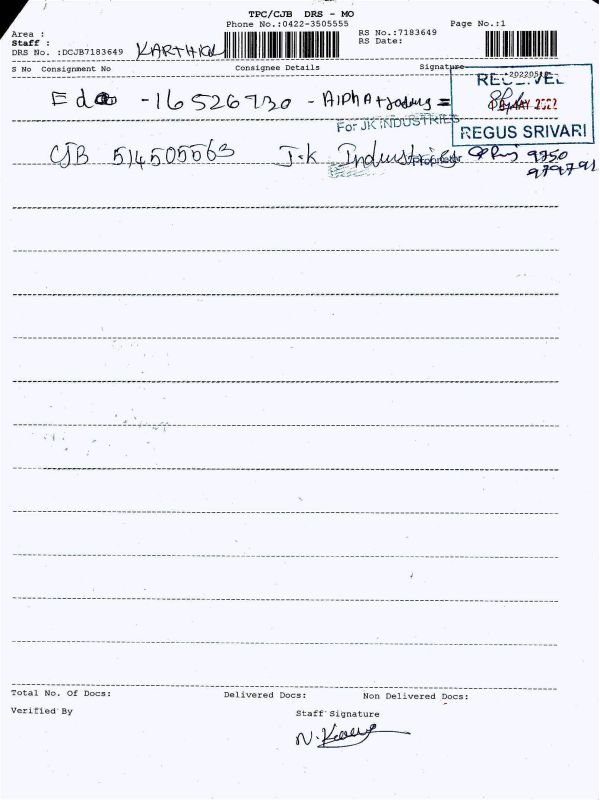 TPC/CJB DRS - MO
Phone No.:0422-3505555
Page No.:1
Area :
Staff :
DRS No. :DCJB7183649
RS No.:7183649
RS Date:
S No Consignment No Consignee Details Signature
RECEIVED
06 MAY 2022
REGUS SRIVARI
- 16526730 - Alpha
For JK INDUSTRIES
CJB 514505563 J.K Industries 9750
Proprietor
979791
Total No. Of Docs: Delivered Docs: Non Delivered Docs:
Verified By Staff Signature